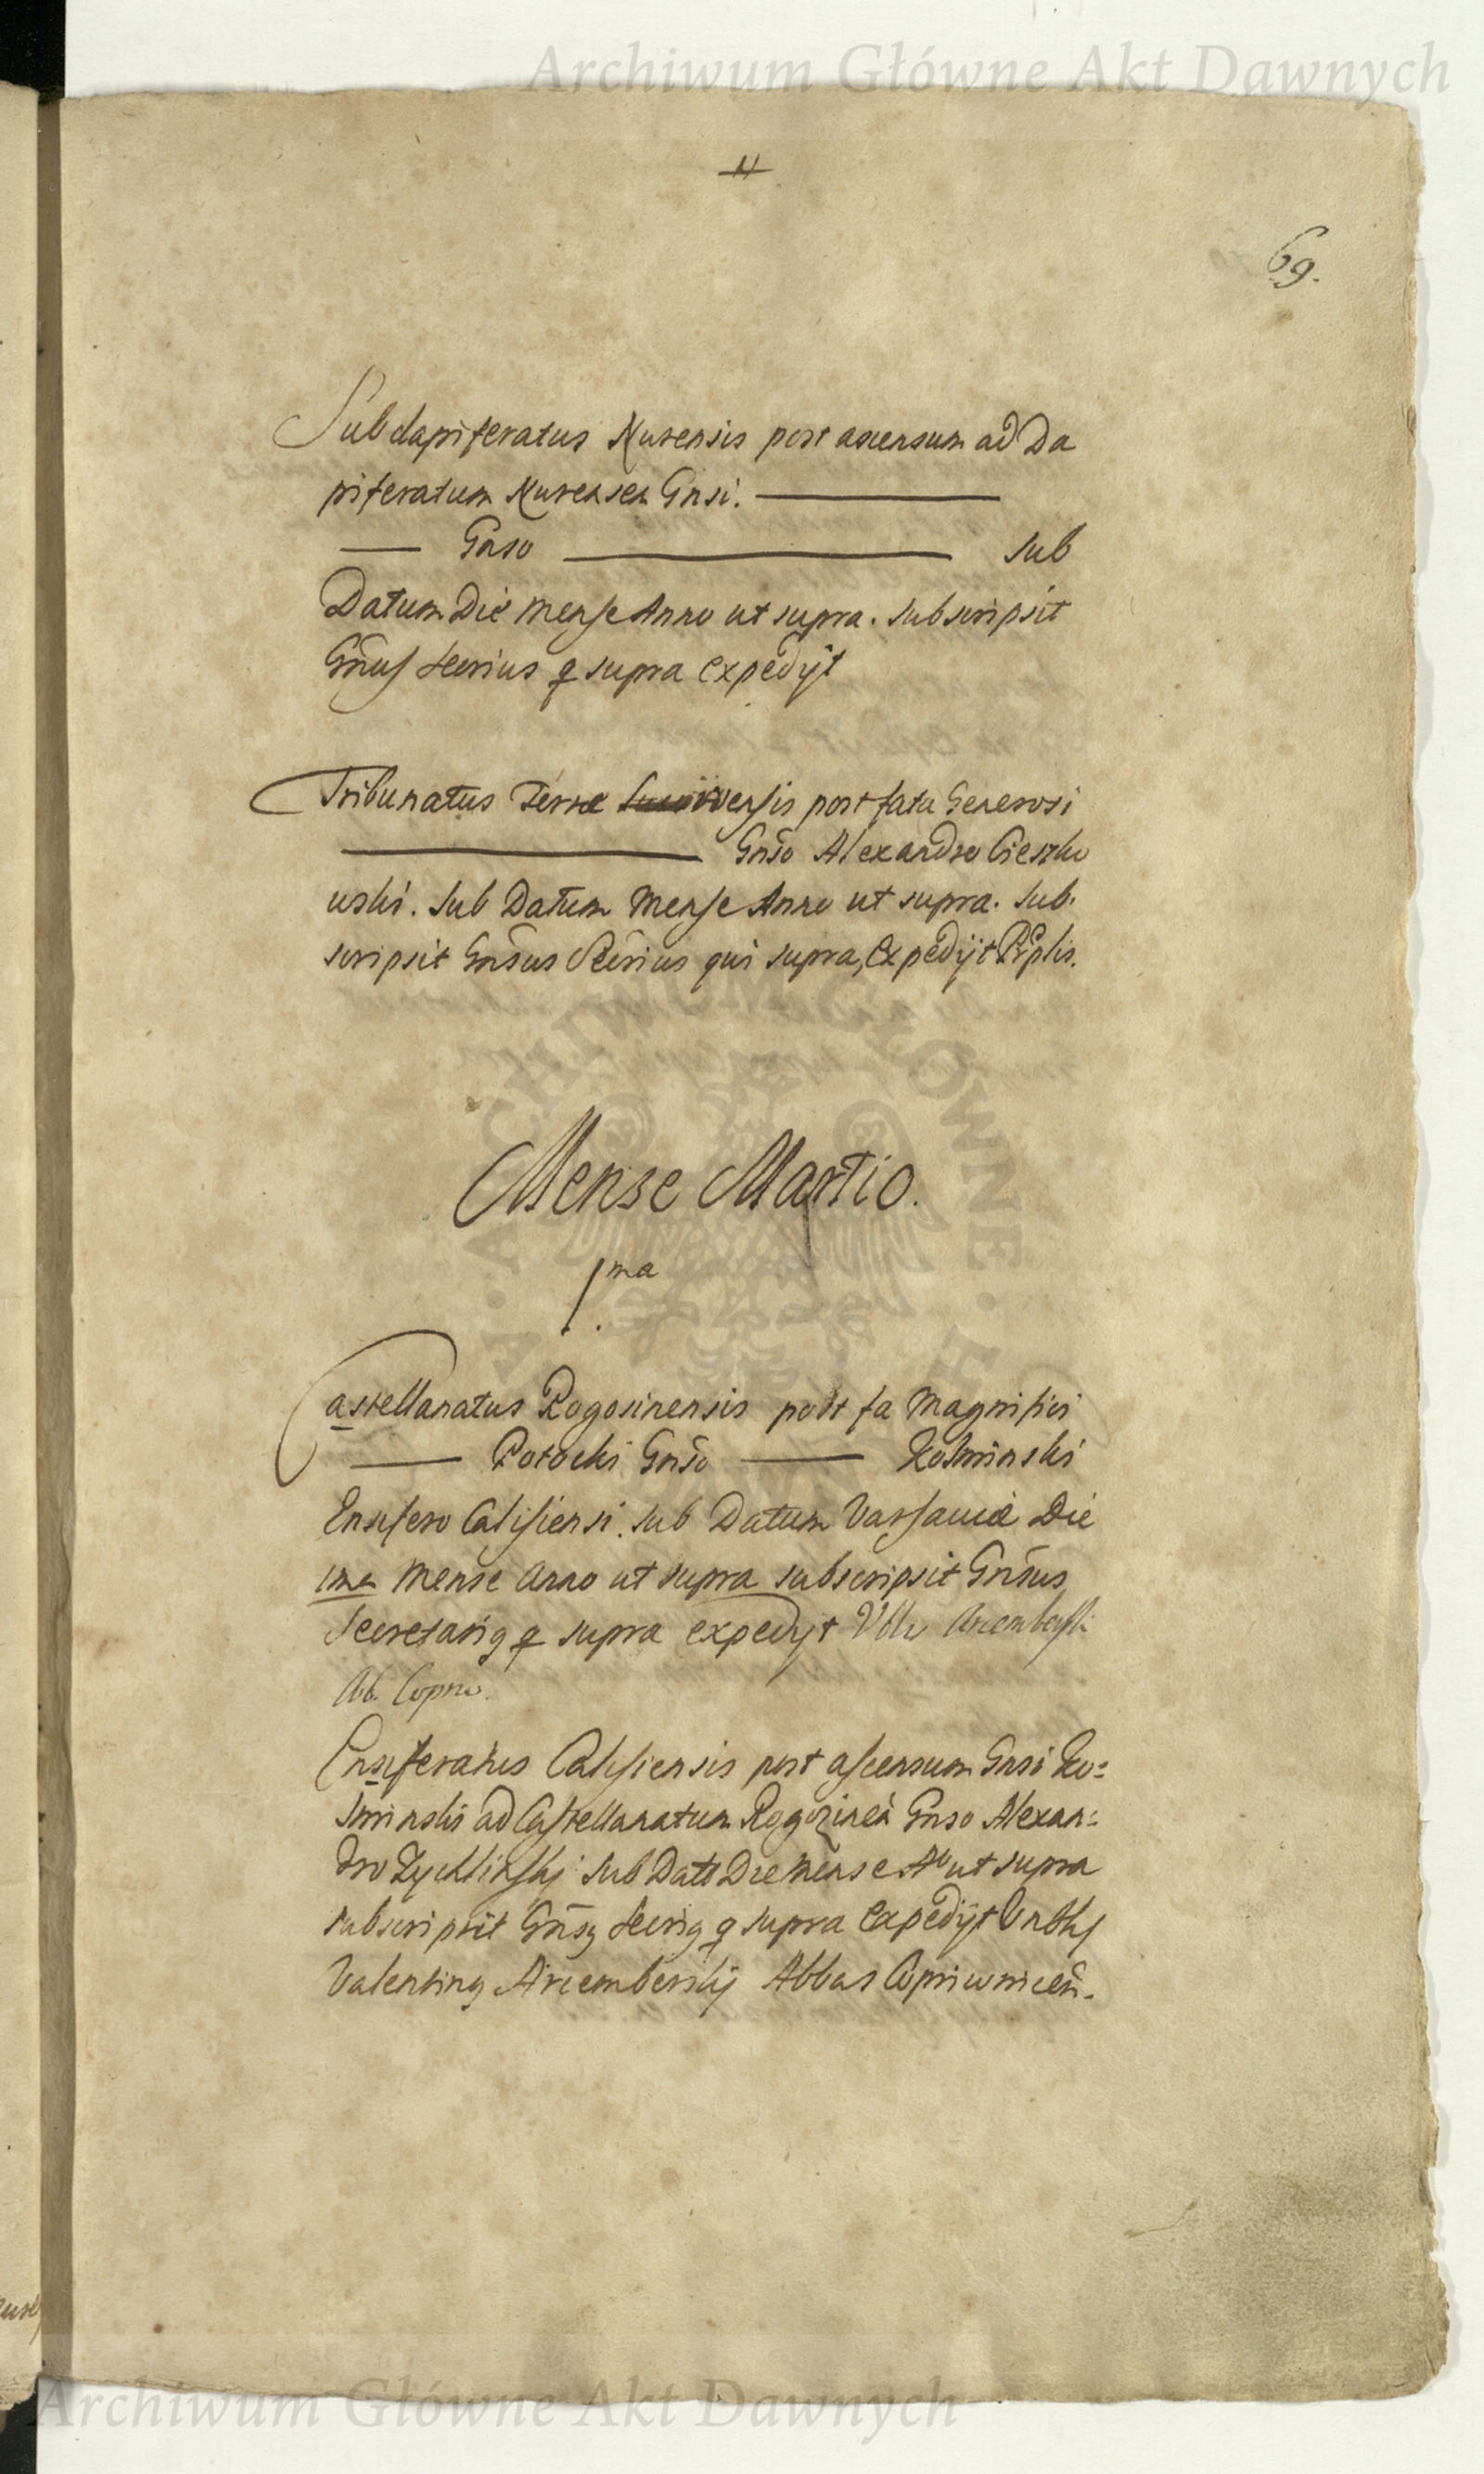 Archiwum Główne Akt Dawnych
69.
Subdapiferatus Nurensis post ascensum ad Da
piferatum Nurensen Gnsi.
Gnso sub
Datum Die mense Anno ut supra. subscripsit
Gnus Secrius q supra expedijt
Tribunatus Terræ ensis post fata Generosi
Gnso Alexandro Cieszko
wski. Sub Datum Mense Anno ut supra. Sub.
scripsit Gnsus Secrius qui supra, expedijt
Mense Martio.
1ma
Castellanatus Rogosinensis post fa Magnifici
Potocki Gnso Kosminski
Ensifero Calisiensi. sub Datum Varsaviæ Die
1ma Mense Anno ut supra subscripsit Gnsus
Secretarig q supra expedyt Arcemberski
Ab. Copriw.
Ensiferatus Calisiensis post ascensum Gnsi Ko=
sminski ad Castellanatum Rogozinen Gnso Alexan=
dro Zychlinskj sub Datt Die mense Aº ut supra
subscripsit Gnsg Secrig q supra expedijt
Valenting Arcemberskj Abbas Copriwnicen.
ARCHIWUM GŁÓWNE
Archiwum Główne Akt Dawnych